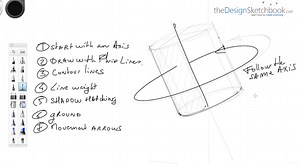 theDesignSketchbook.com
① START WITH AN AXIS
② DRAW WITH THIN LINES
③ CONTOUR LINES
④ LINE WEIGHT
⑤ SHADOW HATCHING
⑥ GROUND
⑦ MOVEMENT ARROWS
FOLLOW THE
SAME AXIS